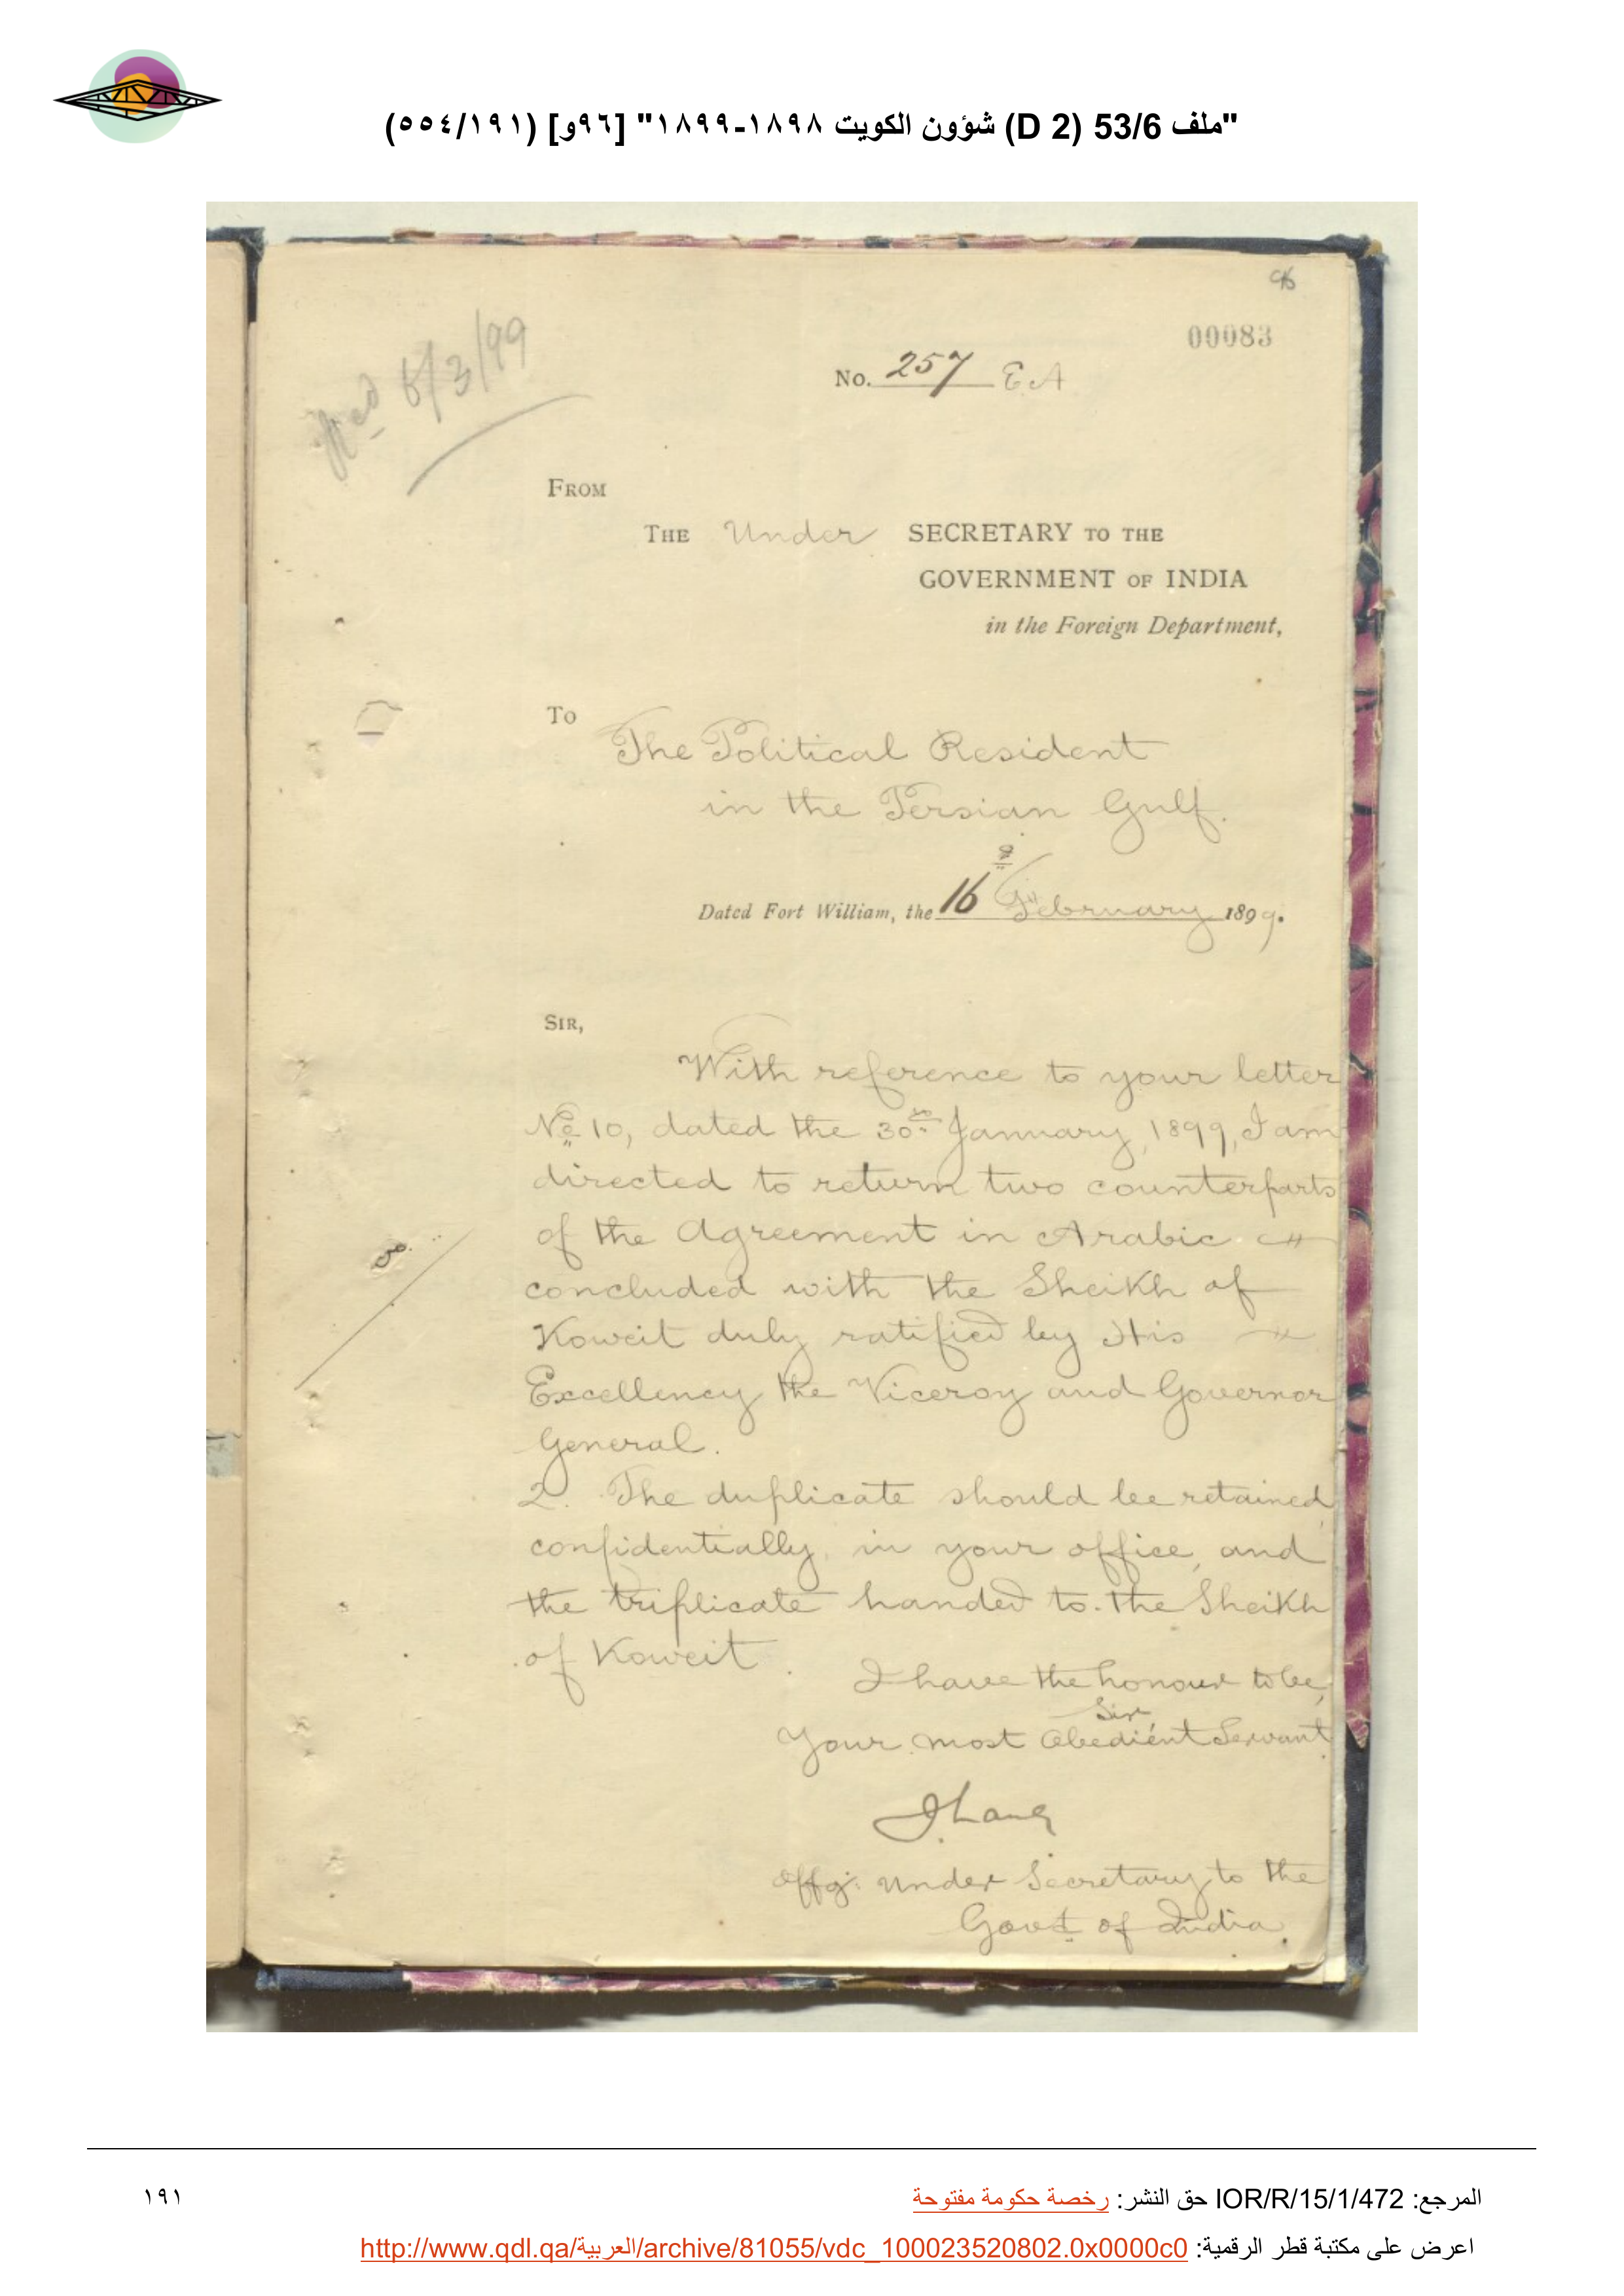 "ملف 53/6 (D 2) شؤون الكويت ١٨٩٨-١٨٩٩" [٩٦و] (٥٥٤/١٩١)
96
00083
No. 257 E A
5/3/99
FROM
THE Under SECRETARY TO THE
GOVERNMENT OF INDIA
in the Foreign Department,
To
The Political Resident
in the Persian Gulf.
Dated Fort William, the 16 February 1899.
SIR,
With reference to your letter
No 10, dated the 30th January, 1899, I am
directed to return two counterparts
of the Agreement in Arabic
concluded with the Sheikh of
Koweit duly ratified by His
Excellency the Viceroy and Governor
General.
2. The duplicate should be retained,
confidentially, in your office, and
the triplicate handed to the Sheikh
of Koweit.
I have the honour to be,
Sir,
Your most Obedient Servant
Offg: Under Secretary to the
Govt of India.
١٩١
المرجع: IOR/R/15/1/472 حق النشر: رخصة حكومة مفتوحة
اعرض على مكتبة قطر الرقمية: http://www.qdl.qa/العربية/archive/81055/vdc_100023520802.0x0000c0